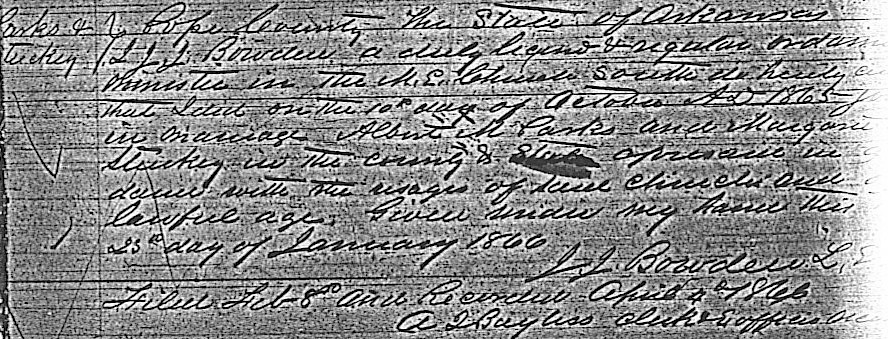 Parks & } Pope County The State of Arkansas
Stuckey } I J. J. Bowden a duly licend & regular ordain
Minister in the M. E. Church South do hereby
that I did on the 10th day of October AD 1865
in marriage Albert M Parks and Margaret
Stuckey in the county & State aforesaid in
dance with the usages of said church and
lawful age. Given under my hand this
23rd day of January 1866
J J Bowden L, E
Filed Feb 8th and Recorded April 4th 1866
A J Bayliss clerk & Exofficio